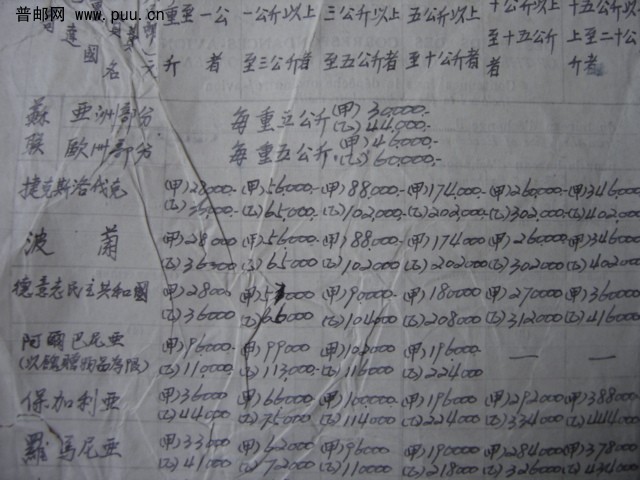 普邮网 www.puu.cn
達國名 元
重至一公斤者 一公斤以上至三公斤者 三公斤以上至五公斤者 五公斤以上至十公斤者 十公斤以上至十五公斤者 十五公斤以上至二十公斤者
蘇聯 亞洲部分 每重五公斤 (甲)30,000.- (乙)44,000.-
歐洲部分 每重五公斤 (甲)46,000.- (乙)60,000.-
捷克斯洛伐克 (甲)28,000.- (甲)56,000.- (甲)88,000.- (甲)174,000.- (甲)260,000.- (甲)346,000
(乙) (乙)65,000.- (乙)102,000.- (乙)202,000.- (乙)302,000.- (乙)402,000
波蘭 (甲)28000 (甲)56000 (甲)88000 (甲)174000 (甲)260000 (甲)346000
(乙)36000 (乙)65000 (乙)102000 (乙)202000 (乙)302000 (乙)402000
德意志民主共和國 (甲)28000 (甲) (甲)90000 (甲)180000 (甲)270000 (甲)360000
(乙)36000 (乙)66000 (乙)104000 (乙)208000 (乙)312000 (乙)416000
阿爾巴尼亞 (甲)96000 (甲)99000 (甲)102000 (甲)196000 — —
(以餽贈物品為限) (乙)110000 (乙)113000 (乙)116000 (乙)224000
保加利亞 (甲)36000 (甲)66000 (甲)100000 (甲)196000 (甲)292000 (甲)388000
(乙)44000 (乙)75000 (乙)114000 (乙)224000 (乙)334000 (乙)444000
羅馬尼亞 (甲)33000 (甲)62000 (甲)96000 (甲)190000 (甲)284000 (甲)378000
(乙)41000 (乙)72000 (乙)110000 (乙)218000 (乙)326000 (乙)434000